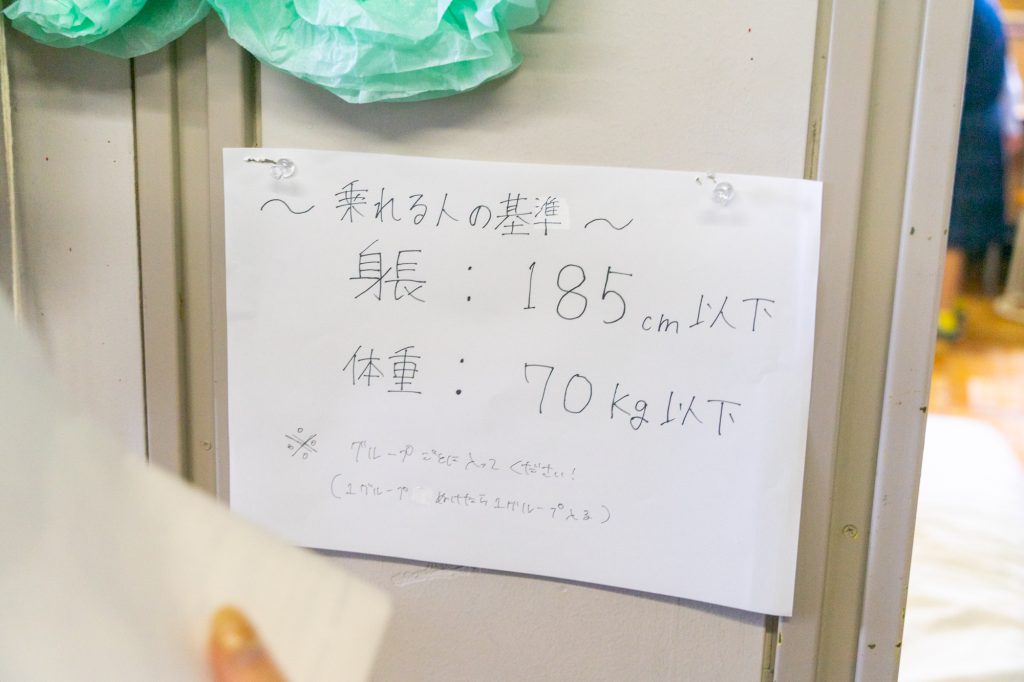 ～ 乗れる人の基準 ～
身長 : 185cm以下
体重 : 70kg以下
※ グループごとに入ってください!
(1グループ ぬけたら1グループ入る)